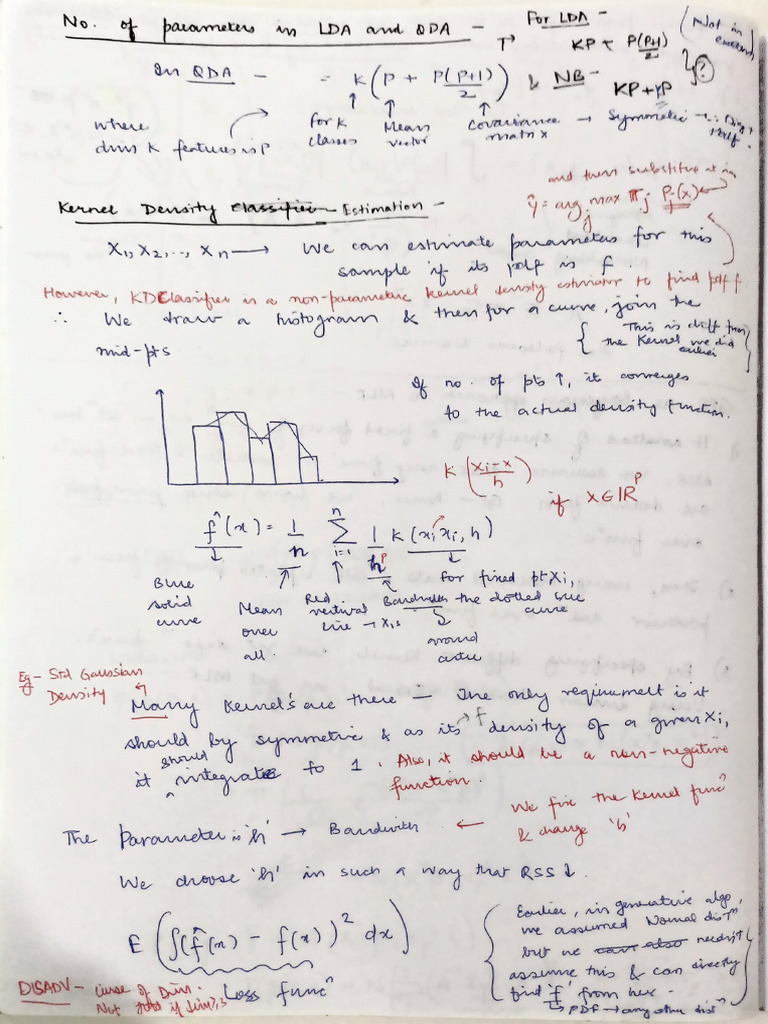 No. of parameters in LDA and QDA -
For LDA -
KP + P(P+1)/2
(Not in
In QDA - = K(P + P(P+1)/2) & NB -
KP + KP
?
where
dim K features is P
for K
classes
Mean
vector
Covariance
matrix
→ Symmetric → ∴ Diag +
Half.
and then substitute it in
ŷ = arg max_j πj Pj(x)
Kernel Density Classifier Estimation -
X1, X2, .., Xn → We can estimate parameters for this
sample if its pdf is f.
However, KDClassifier is a non-parametric kernel density estimator to find pdf f
∴ We draw a histogram & then for a curve, join the
mid-pts
{ This is diff from
the Kernel we did
earlier }
If no. of pts ↑, it converges
to the actual density function.
K((xi - x)/h)
if X ∈ ℝ^p
f̂(x) = 1/n Σ_{i=1}^{n} 1/h^p K(x, xi, h)
Blue
solid
curve
Mean
over
all.
Red
vertical
line → Xi,s
Bandwidth
↓
around
For fixed pt Xi,
the dotted blue
curve
Eg - Std Gaussian
Density
Many Kernel's are there - The only requirement is it
should by symmetric & as its → f density of a given Xi,
it should integrates to 1. Also, it should be a non-negative
function.
The Parameter is 'h' → Bandwith ← We fix the Kernel funcⁿ
& change 'h'
We choose 'h' in such a way that RSS ↓.
E(∫(f̂(x) - f(x))² dx)
Loss funcⁿ
{ Earlier, in generative algo,
we assumed Normal distⁿ
but we can also needn't
assume this & can directly
find 'f̂' from here -
↳ PDF → any other distⁿ }
DISADV - Curse of Dim.
Not if dim > 3